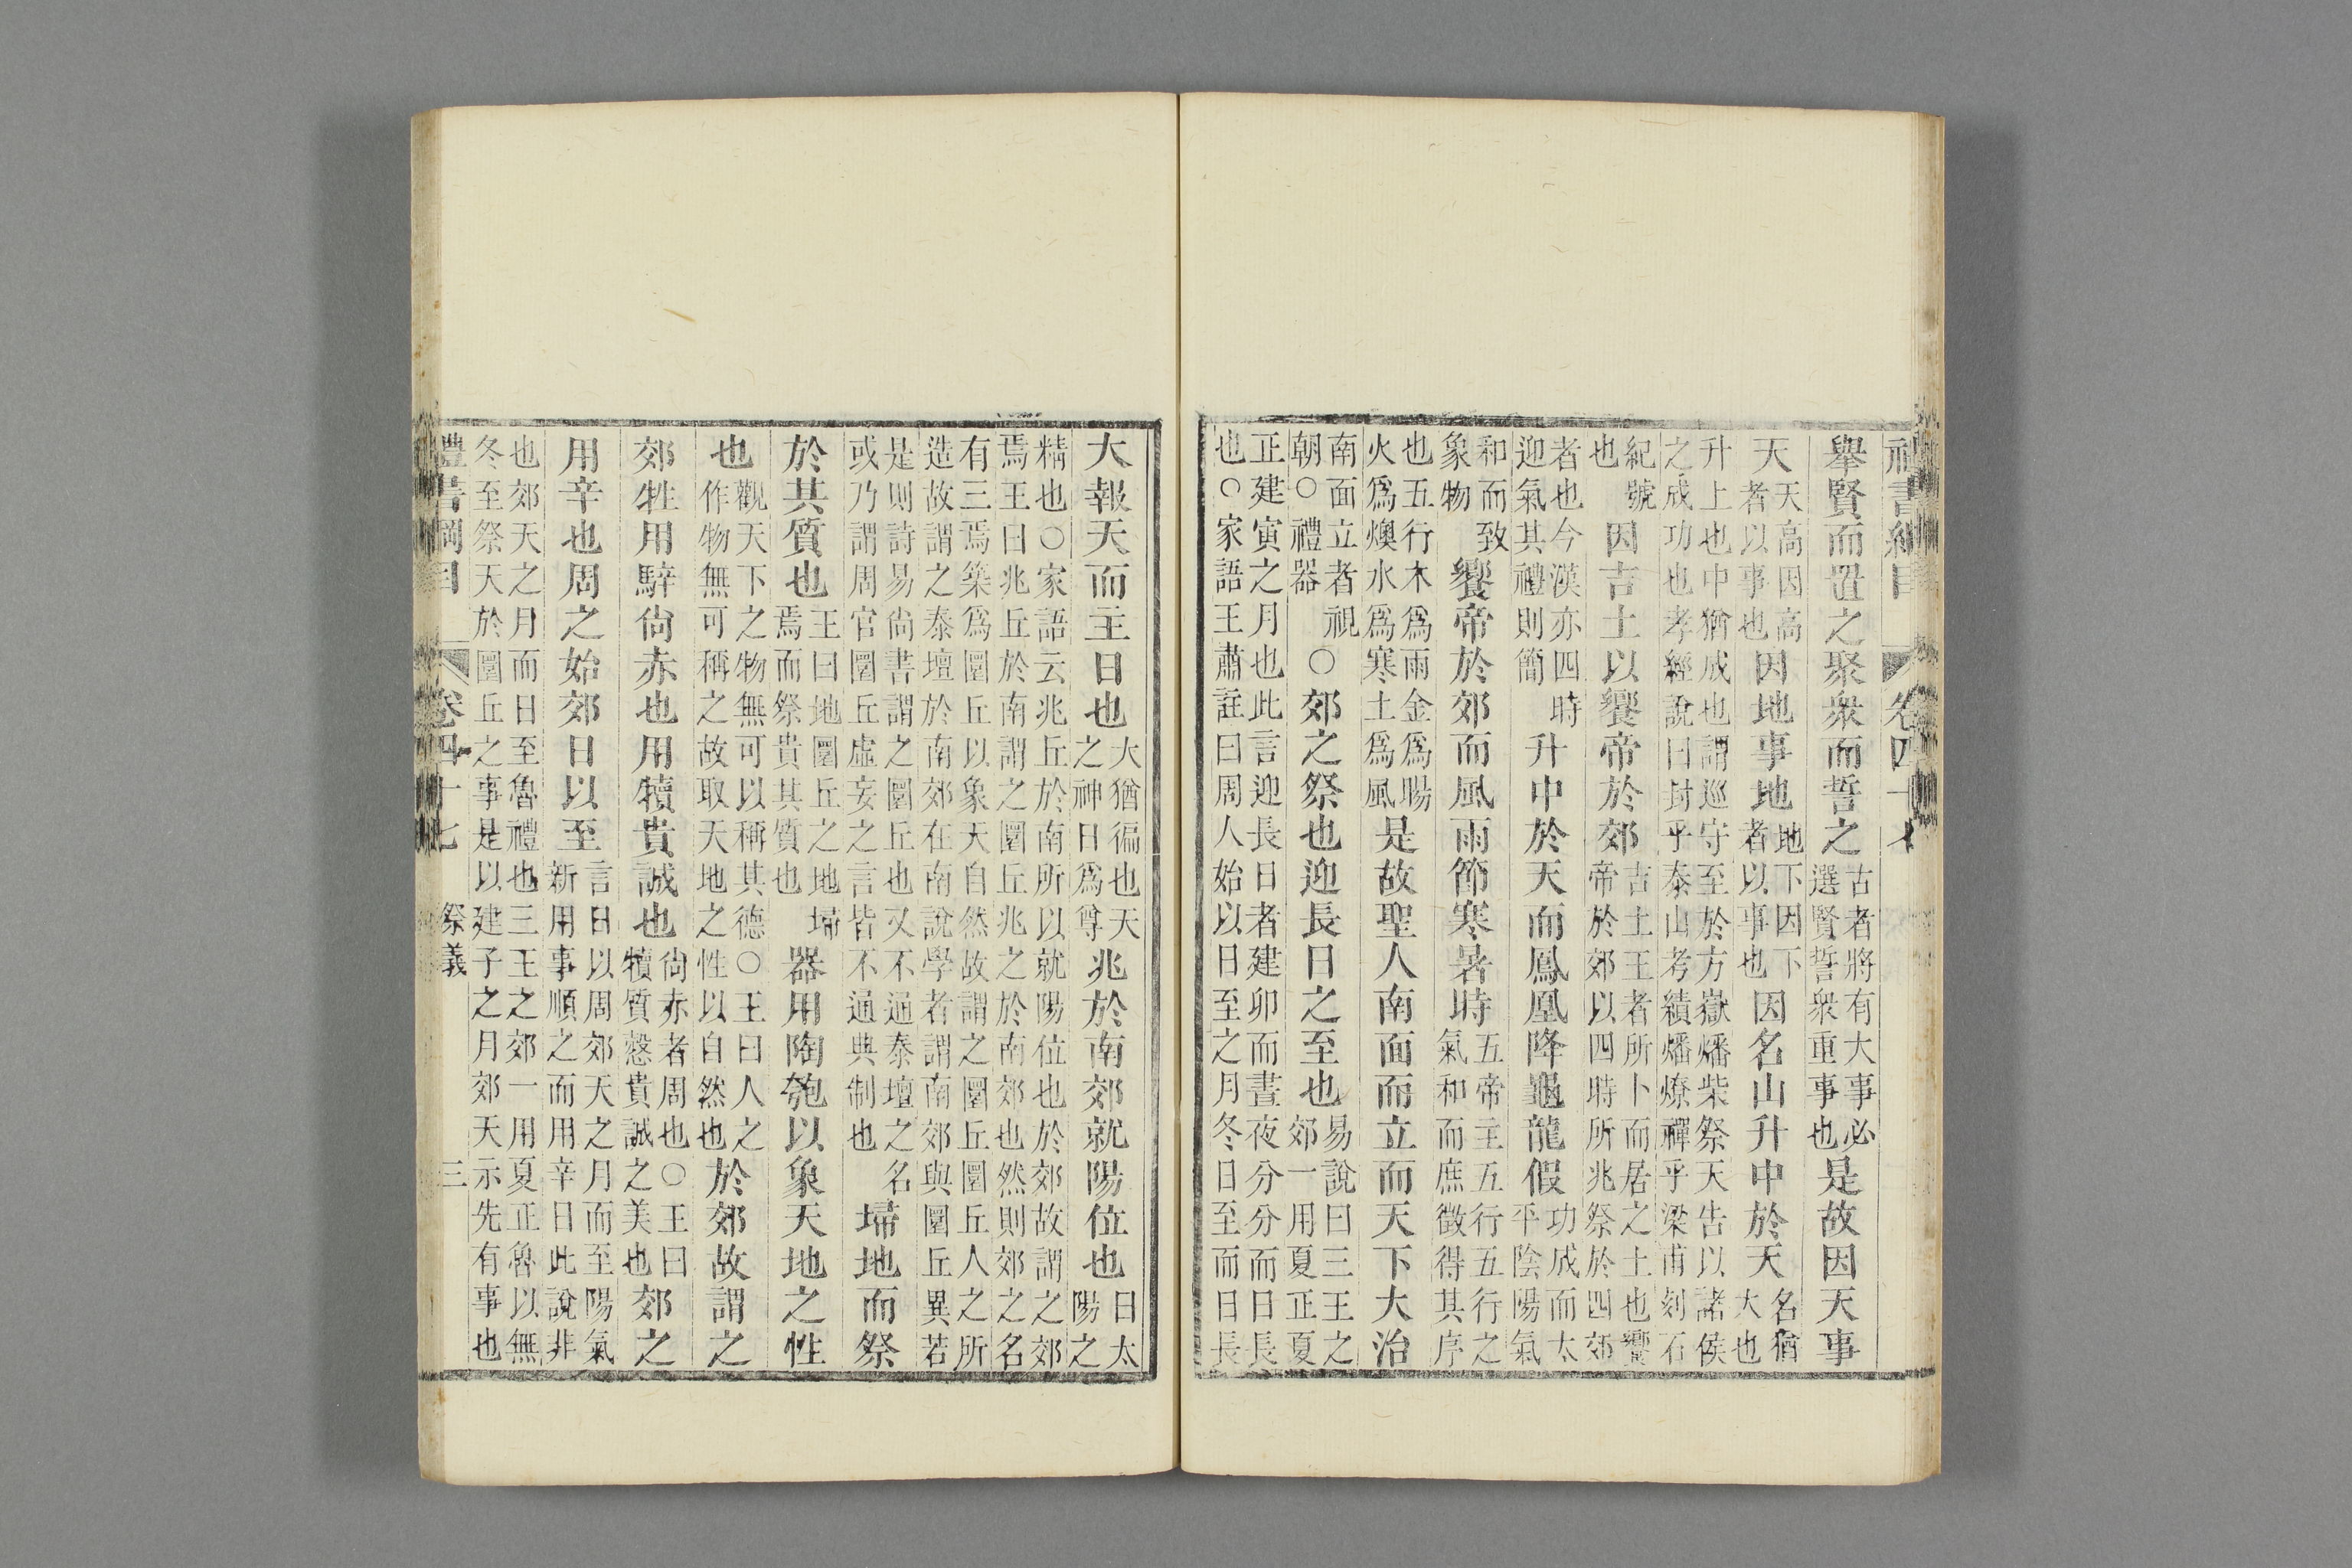 禮書綱目 卷四十七
舉賢而置之聚衆而誓之古者將有大事必選賢誓衆重事也是故因天事
天天高因高者以事也因地事地地下因下者以事也因名山升中於天名猶大也
升上也中猶成也謂巡守至於方嶽燔柴祭天告以諸侯
之成功也孝經說曰封乎泰山考績燔燎禪乎梁甫刻石
紀號也因吉土以饗帝於郊吉土王者所卜而居之土也饗帝於郊以四時所兆祭於四郊
者也今漢亦四時迎氣其禮則簡升中於天而鳳凰降龜龍假功成而太平陰陽氣
和而致象物饗帝於郊而風雨節寒暑時五帝主五行五行之氣和而庶徵得其序
也五行木爲雨金爲暘火爲燠水爲寒土爲風是故聖人南面而立而天下大治
南面立者視朝○禮器○郊之祭也迎長日之至也易說曰三王之郊一用夏正夏
正建寅之月也此言迎長日者建卯而晝夜分分而日長
也○家語王肅註曰周人始以日至之月冬日至而日長
大報天而主日也大猶徧也天之神日爲尊兆於南郊就陽位也日太陽之
精也○家語云兆丘於南所以就陽位也於郊故謂之郊
焉王曰兆丘於南謂之圜丘兆之於南郊也然則郊之名
有三焉築爲圜丘以象天自然故謂之圜丘圜丘人之所
造故謂之泰壇於南郊在南說學者謂南郊與圜丘異若
是則詩易尙書謂之圜丘也又不通泰壇之名或乃謂周官圜丘虛妄之言皆不通典制也埽地而祭
於其質也王曰地圜丘之地埽焉而祭貴其質也器用陶匏以象天地之性
也觀天下之物無可以稱其德○王曰人之作物無可稱之故取天地之性以自然也於郊故謂之
郊牲用騂尙赤也用犢貴誠也尙赤者周也○王曰犢質愨貴誠之美也郊之
用辛也周之始郊日以至言日以周郊天之月而至陽氣新用事順之而用辛日此說非
也郊天之月而日至魯禮也三王之郊一用夏正魯以無
冬至祭天於圜丘之事是以建子之月郊天示先有事也
禮書綱目 卷四十七 祭義 三